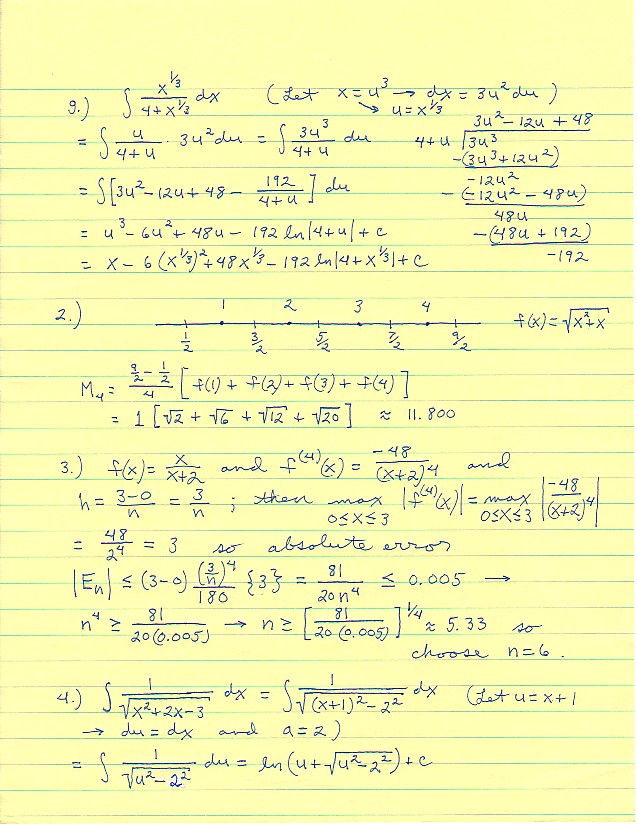 9.) ∫ x^{1/3}/(4+x^{1/3}) dx (Let x = u³ → dx = 3u² du)
→ u = x^{1/3}
= ∫ u/(4+u) · 3u² du = ∫ 3u³/(4+u) du
3u² - 12u + 48
4+u ) 3u³
-(3u³ + 12u²)
-12u²
-(-12u² - 48u)
48u
-(48u + 192)
-192
= ∫ [3u² - 12u + 48 - 192/(4+u)] du
= u³ - 6u² + 48u - 192 ln|4+u| + c
= x - 6(x^{1/3})² + 48x^{1/3} - 192 ln|4+x^{1/3}| + c
2.) 1 2 3 4
1/2 3/2 5/2 7/2 9/2 f(x) = √(x²+x)
M₄ = (9/2 - 1/2)/4 [f(1) + f(2) + f(3) + f(4)]
= 1 [√2 + √6 + √12 + √20] ≈ 11.800
3.) f(x) = x/(x+2) and f^{(4)}(x) = -48/(x+2)^4 and
h = (3-0)/n = 3/n ; then max_{0≤x≤3} |f^{(4)}(x)| = max_{0≤x≤3} |-48/(x+2)^4|
= 48/2^4 = 3 so absolute error
|E_n| ≤ (3-0) (3/n)^4/180 {3} = 81/(20n^4) ≤ 0.005 →
n^4 ≥ 81/(20(0.005)) → n ≥ [81/(20(0.005))]^{1/4} ≈ 5.33 so
choose n=6.
4.) ∫ 1/√(x²+2x-3) dx = ∫ 1/√((x+1)²-2²) dx (Let u = x+1
→ du = dx and a = 2)
= ∫ 1/√(u²-2²) du = ln(u+√(u²-2²)) + c